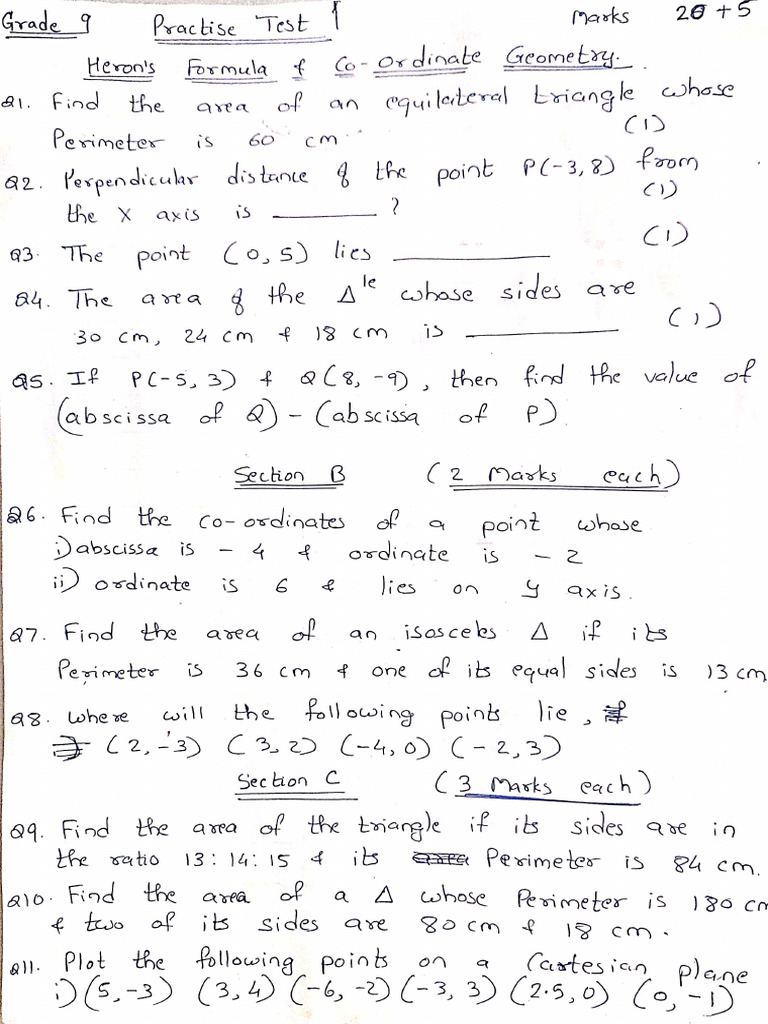 Grade 9 Practise Test 1 Marks 20 + 5
Heron's Formula & Co-Ordinate Geometry.
Q1. Find the area of an equilateral triangle whose
Perimeter is 60 cm. (1)
Q2. Perpendicular distance of the point P(-3,8) from
the X axis is ________ ? (1)
Q3. The point (0,5) lies ________ (1)
Q4. The area of the Δle whose sides are
30 cm, 24 cm & 18 cm is ________ (1)
Q5. If P(-5, 3) & Q(8, -9), then find the value of
(abscissa of Q) - (abscissa of P).
Section B (2 Marks each)
Q6. Find the co-ordinates of a point whose
i) abscissa is - 4 & ordinate is - 2
ii) ordinate is 6 & lies on y axis.
Q7. Find the area of an isosceles Δ if its
Perimeter is 36 cm & one of its equal sides is 13 cm
Q8. Where will the following points lie,
(2,-3) (3,2) (-4,0) (-2,3)
Section C (3 Marks each)
Q9. Find the area of the triangle if its sides are in
the ratio 13:14:15 & its Perimeter is 84 cm.
Q10. Find the area of a Δ whose Perimeter is 180 cm
& two of its sides are 80 cm & 18 cm.
Q11. Plot the following points on a Cartesian plane
i) (5,-3) (3,4) (-6,-2) (-3,3) (2.5,0) (0,-1)